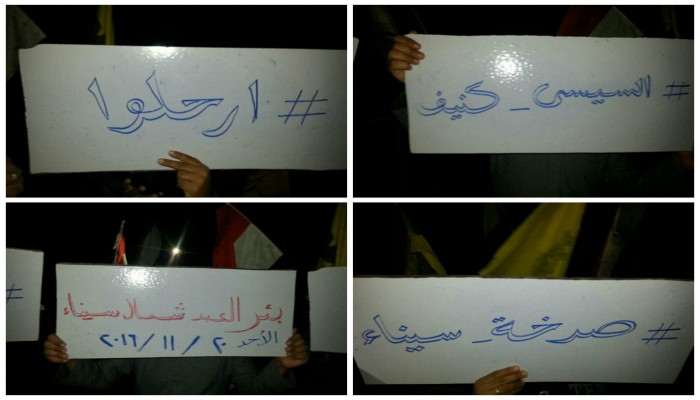 # ارحلوا
# السيسى_كنيف
بئر العبد شمال سيناء
الأحد ٢٠ / ١١ / ٢٠١٦
#
# صرخة_سيناء